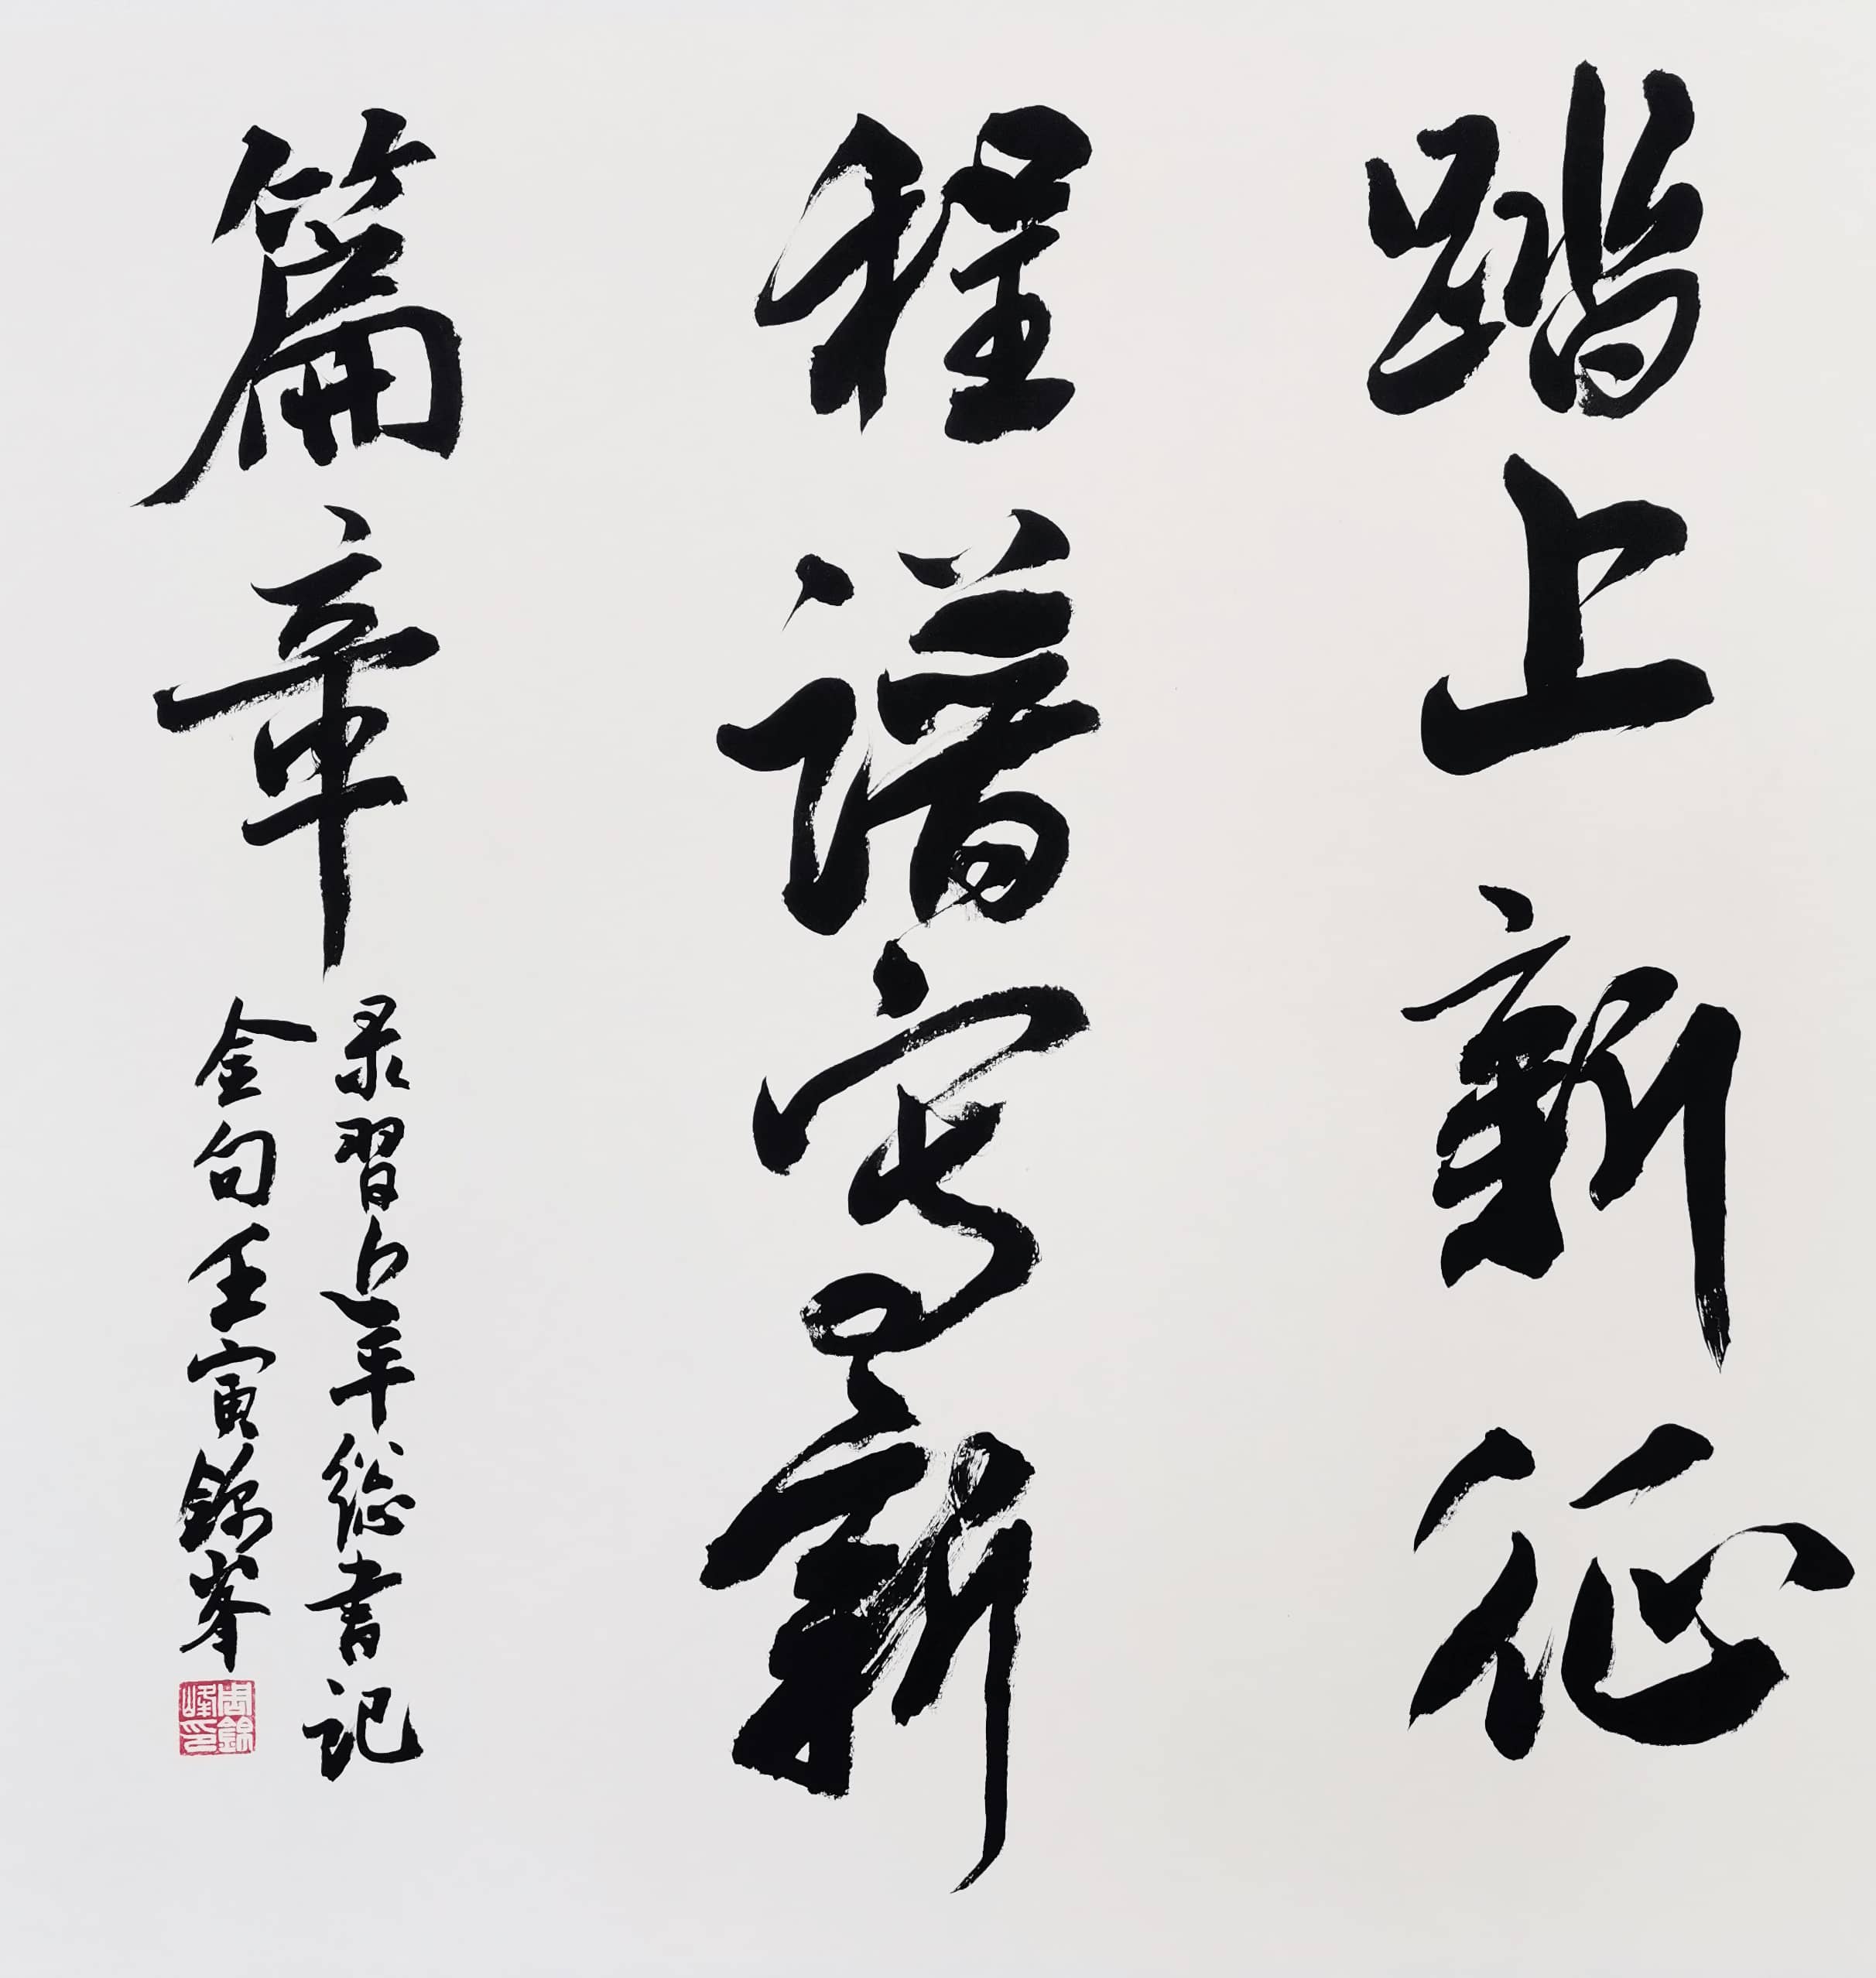 踏上新征
程谱写新
篇章
录习近平总书记
金句壬寅锦峯
周錦
峰印